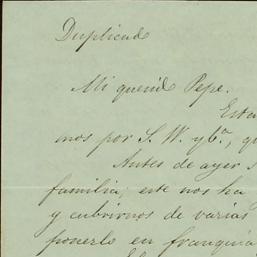 Duplicado
Mi querido Pepe.
Esta
mos por S. W. y bᵃ, q
Antes de ayer s
familia; este nos ha
y cubrirnos de varias
ponerlo en franquia